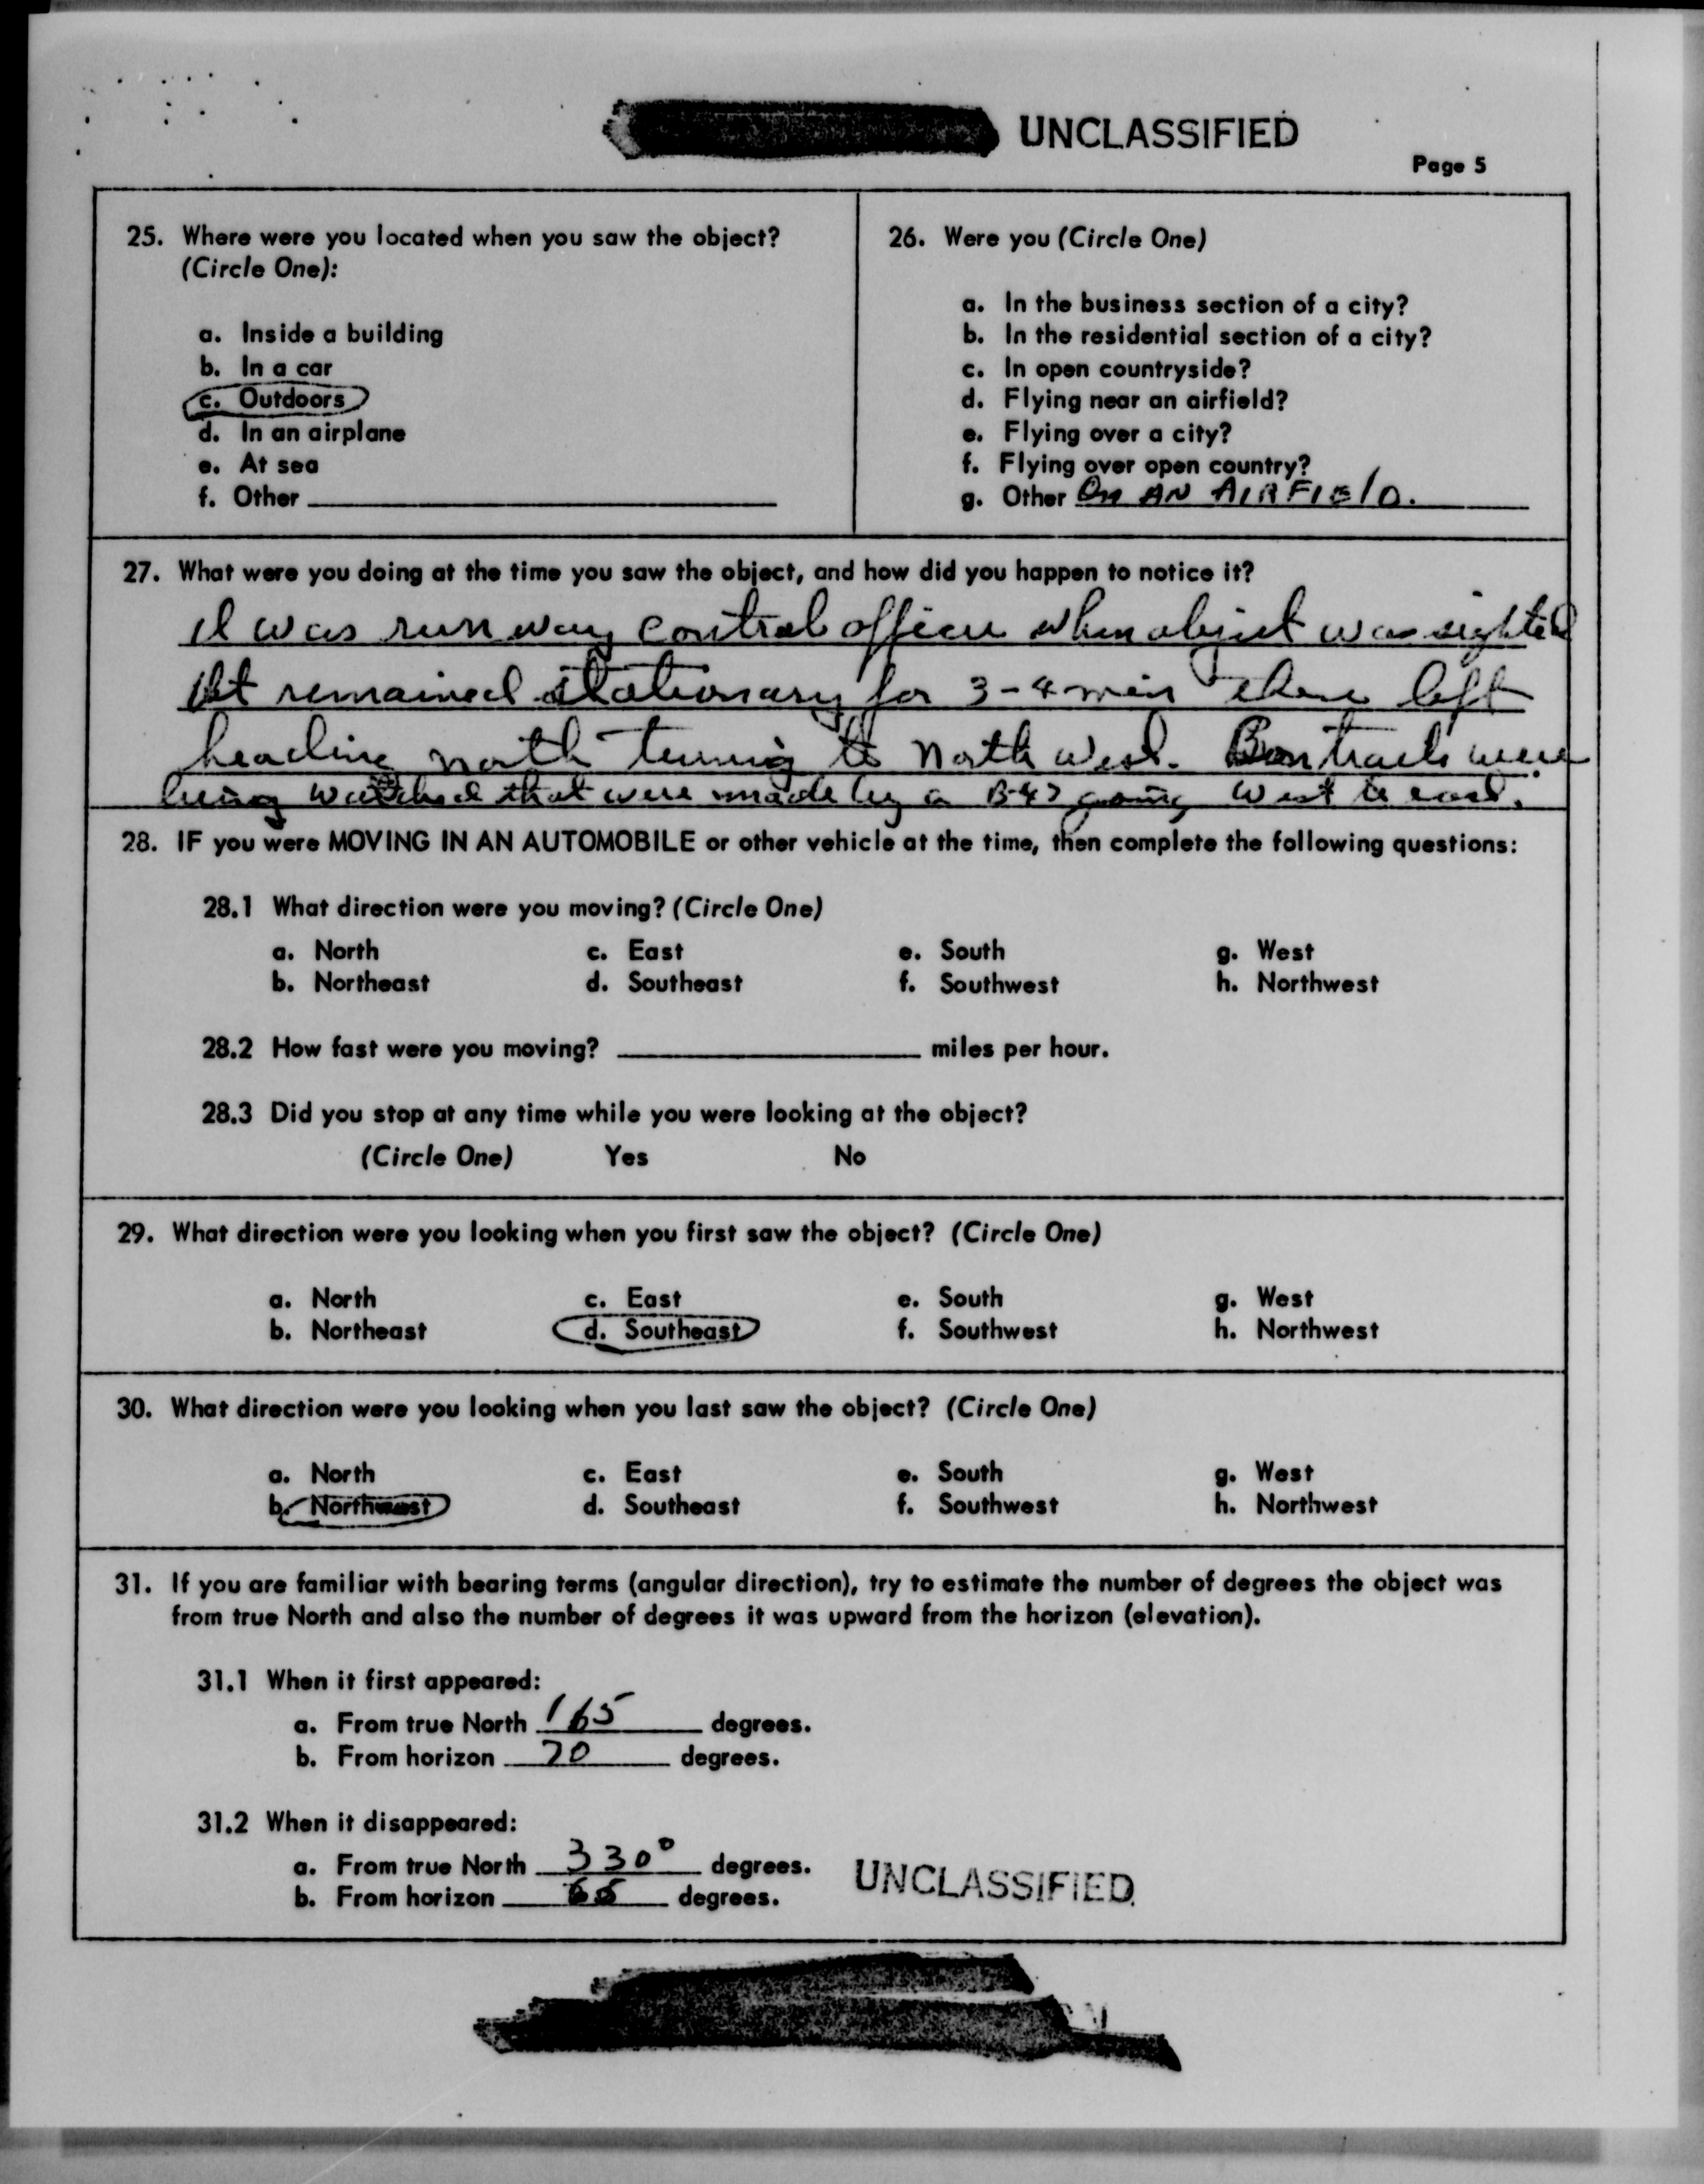 UNCLASSIFIED
Page 5
25. Where were you located when you saw the object?
(Circle One):
a. Inside a building
b. In a car
c. Outdoors
d. In an airplane
e. At sea
f. Other
26. Were you (Circle One)
a. In the business section of a city?
b. In the residential section of a city?
c. In open countryside?
d. Flying near an airfield?
e. Flying over a city?
f. Flying over open country?
g. Other ON AN AIRFIELD.
27. What were you doing at the time you saw the object, and how did you happen to notice it?
I was runway control officer when object was sighted
It remained stationary for 3-4 min then left
heading north turning to North West. Contrails were
being watched that were made by a B-47 going west to east.
28. IF you were MOVING IN AN AUTOMOBILE or other vehicle at the time, then complete the following questions:
28.1 What direction were you moving? (Circle One)
a. North c. East e. South g. West
b. Northeast d. Southeast f. Southwest h. Northwest
28.2 How fast were you moving? miles per hour.
28.3 Did you stop at any time while you were looking at the object?
(Circle One) Yes No
29. What direction were you looking when you first saw the object? (Circle One)
a. North c. East e. South g. West
b. Northeast d. Southeast f. Southwest h. Northwest
30. What direction were you looking when you last saw the object? (Circle One)
a. North c. East e. South g. West
b. d. Southeast f. Southwest h. Northwest
31. If you are familiar with bearing terms (angular direction), try to estimate the number of degrees the object was
from true North and also the number of degrees it was upward from the horizon (elevation).
31.1 When it first appeared:
a. From true North 165 degrees.
b. From horizon 70 degrees.
31.2 When it disappeared:
a. From true North 330° degrees.
b. From horizon degrees.
UNCLASSIFIED